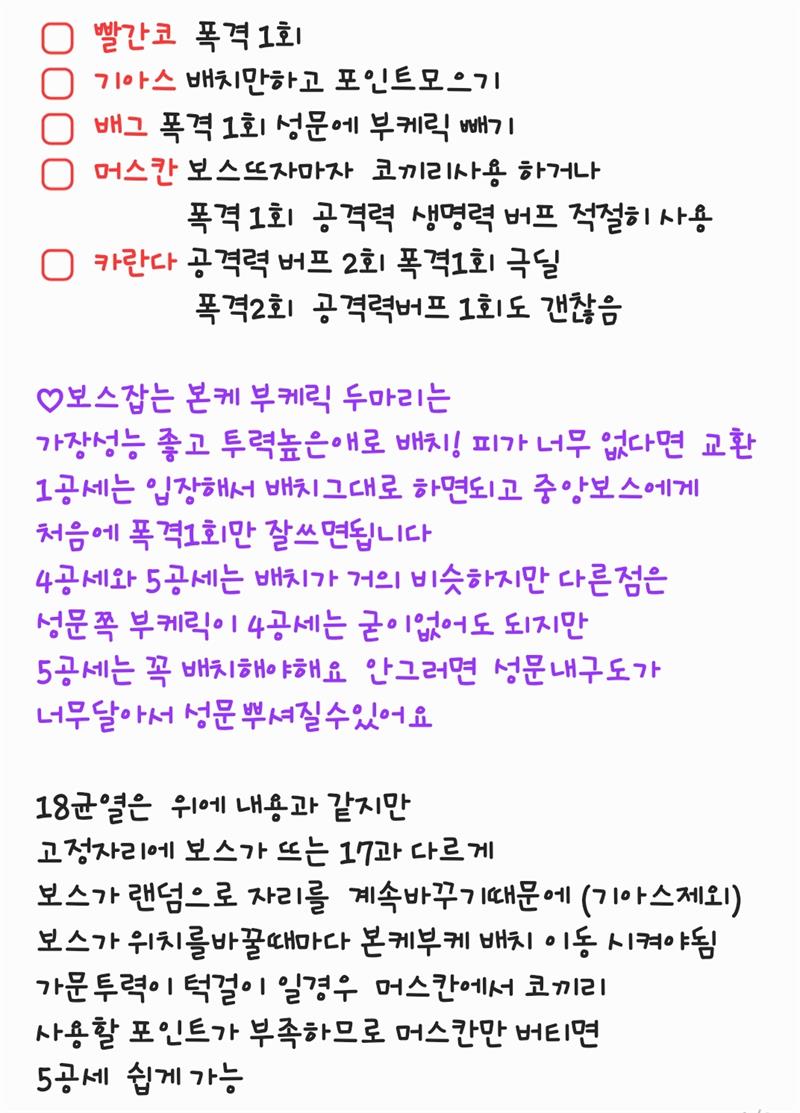 빨간코 폭격 1회
기아스 배치만하고 포인트모으기
배그 폭격 1회 성문에 부케릭 빼기
머스칸 보스뜨자마자 코끼리사용 하거나
폭격 1회 공격력 생명력 버프 적절히 사용
카란다 공격력 버프 2회 폭격1회 극딜
폭격2회 공격력버프 1회도 갠찮음
♡보스잡는 본케 부케릭 두마리는
가장성능 좋고 투력높은애로 배치! 피가 너무 없다면 교환
1공세는 입장해서 배치그대로 하면되고 중앙보스에게
처음에 폭격1회만 잘쓰면됩니다
4공세와 5공세는 배치가 거의 비슷하지만 다른점은
성문쪽 부케릭이 4공세는 굳이없어도 되지만
5공세는 꼭 배치해야해요 안그러면 성문내구도가
너무달아서 성문뿌셔질수있어요
18균열은 위에 내용과 같지만
고정자리에 보스가 뜨는 17과 다르게
보스가 랜덤으로 자리를 계속바꾸기때문에 (기아스제외)
보스가 위치를바꿀때마다 본케부케 배치 이동 시켜야됨
가문투력이 턱걸이 일경우 머스칸에서 코끼리
사용할 포인트가 부족하므로 머스칸만 버티면
5공세 쉽게 가능